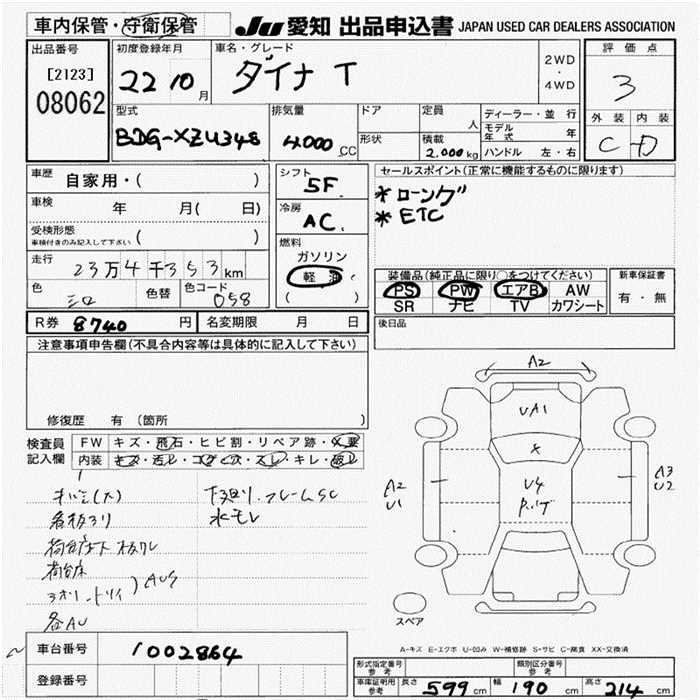 車内保管・守衛保管
JU 愛知 出品申込書 JAPAN USED CAR DEALERS ASSOCIATION
出品番号
[2123]
08062
初度登録年月
22 10 月
車名・グレード
ダイナ T
2WD
・
4WD
評価点
3
外装 内装
C D
型式
BDG-XZU348
排気量
4.000 CC
ドア
形状
定員
人
積載
2.000 kg
ディーラー・並行
モデル年式 年
ハンドル 左・右
車歴
自家用・( )
車検
年 月( 日)
受検形態
車検付きのみ記入して下さい ( )
走行
23万4千353km
色
シロ
色替
色コード
058
シフト
5F
冷房
AC
燃料
ガソリン
軽油
( )
セールスポイント(正常に機能するものに限ります)
*ロング
*ETC
装備品(純正品に限り○をつけてください)
PS PW エアB AW
SR ナビ TV カワシート
新車保証書
有・無
R券 8740 円
名変期限 月 日
後日品
注意事項申告欄(不具合内容等は具体的に記入して下さい)
修復歴 有(箇所 )
検査員
記入欄
FW キズ・飛石・ヒビ割・リペア跡・X要
内装 キズ・汚レ・コゲ・穴・スレ・キレ・破レ
下廻り、フレームSC
水モレ
看板ヨリ
荷台床下
荷台床
AUS
各AU
A2
UA1
X
U4
A2
U1
A3
U2
スペア
A-キズ E-エクボ U-凹み W-補修跡 S-サビ C-腐食 XX-交換済
車台番号 1002864
登録番号
形式指定番号
参考
類別区分番号
参考
車庫証明用
参考
長さ 599 cm 幅 190 cm 高さ 214 cm